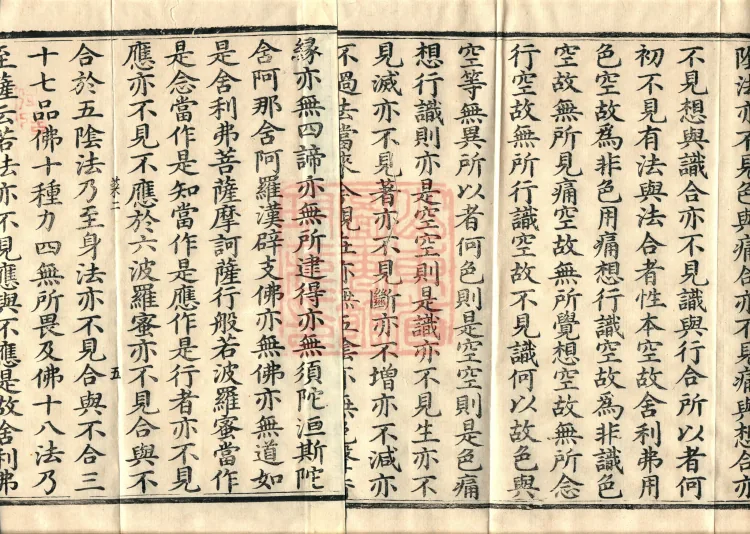 陰法亦不見色與痛合亦不見痛與想合亦
不見想與識合亦不見識與行合所以者何
初不見有法與法合者性本空故舍利弗用
色空故為非色用痛想行識空故為非識色
空故無所見痛空故無所覺想空故無所念
行空故無所行識空故不見識何以故色與
空等無異所以者何色則是空空則是色痛
想行識則亦是空空則是識亦不見生亦不
見滅亦不見著亦不見斷亦不增亦不減亦
不過去當來今現在亦無五陰亦無色
緣亦無四諦亦無所逮得亦無須陀洹斯陀
舍阿那舍阿羅漢辟支佛亦無佛亦無道如
是舍利弗菩薩摩訶薩行般若波羅蜜當作
是念當作是知當作是應作是行者亦不見
應亦不見不應於六波羅蜜亦不見合與不
菜二
五
合於五陰法乃至身法亦不見合與不合三
十七品佛十種力四無所畏及佛十八法乃
至薩云若法亦不見應與不應是故舍利弗